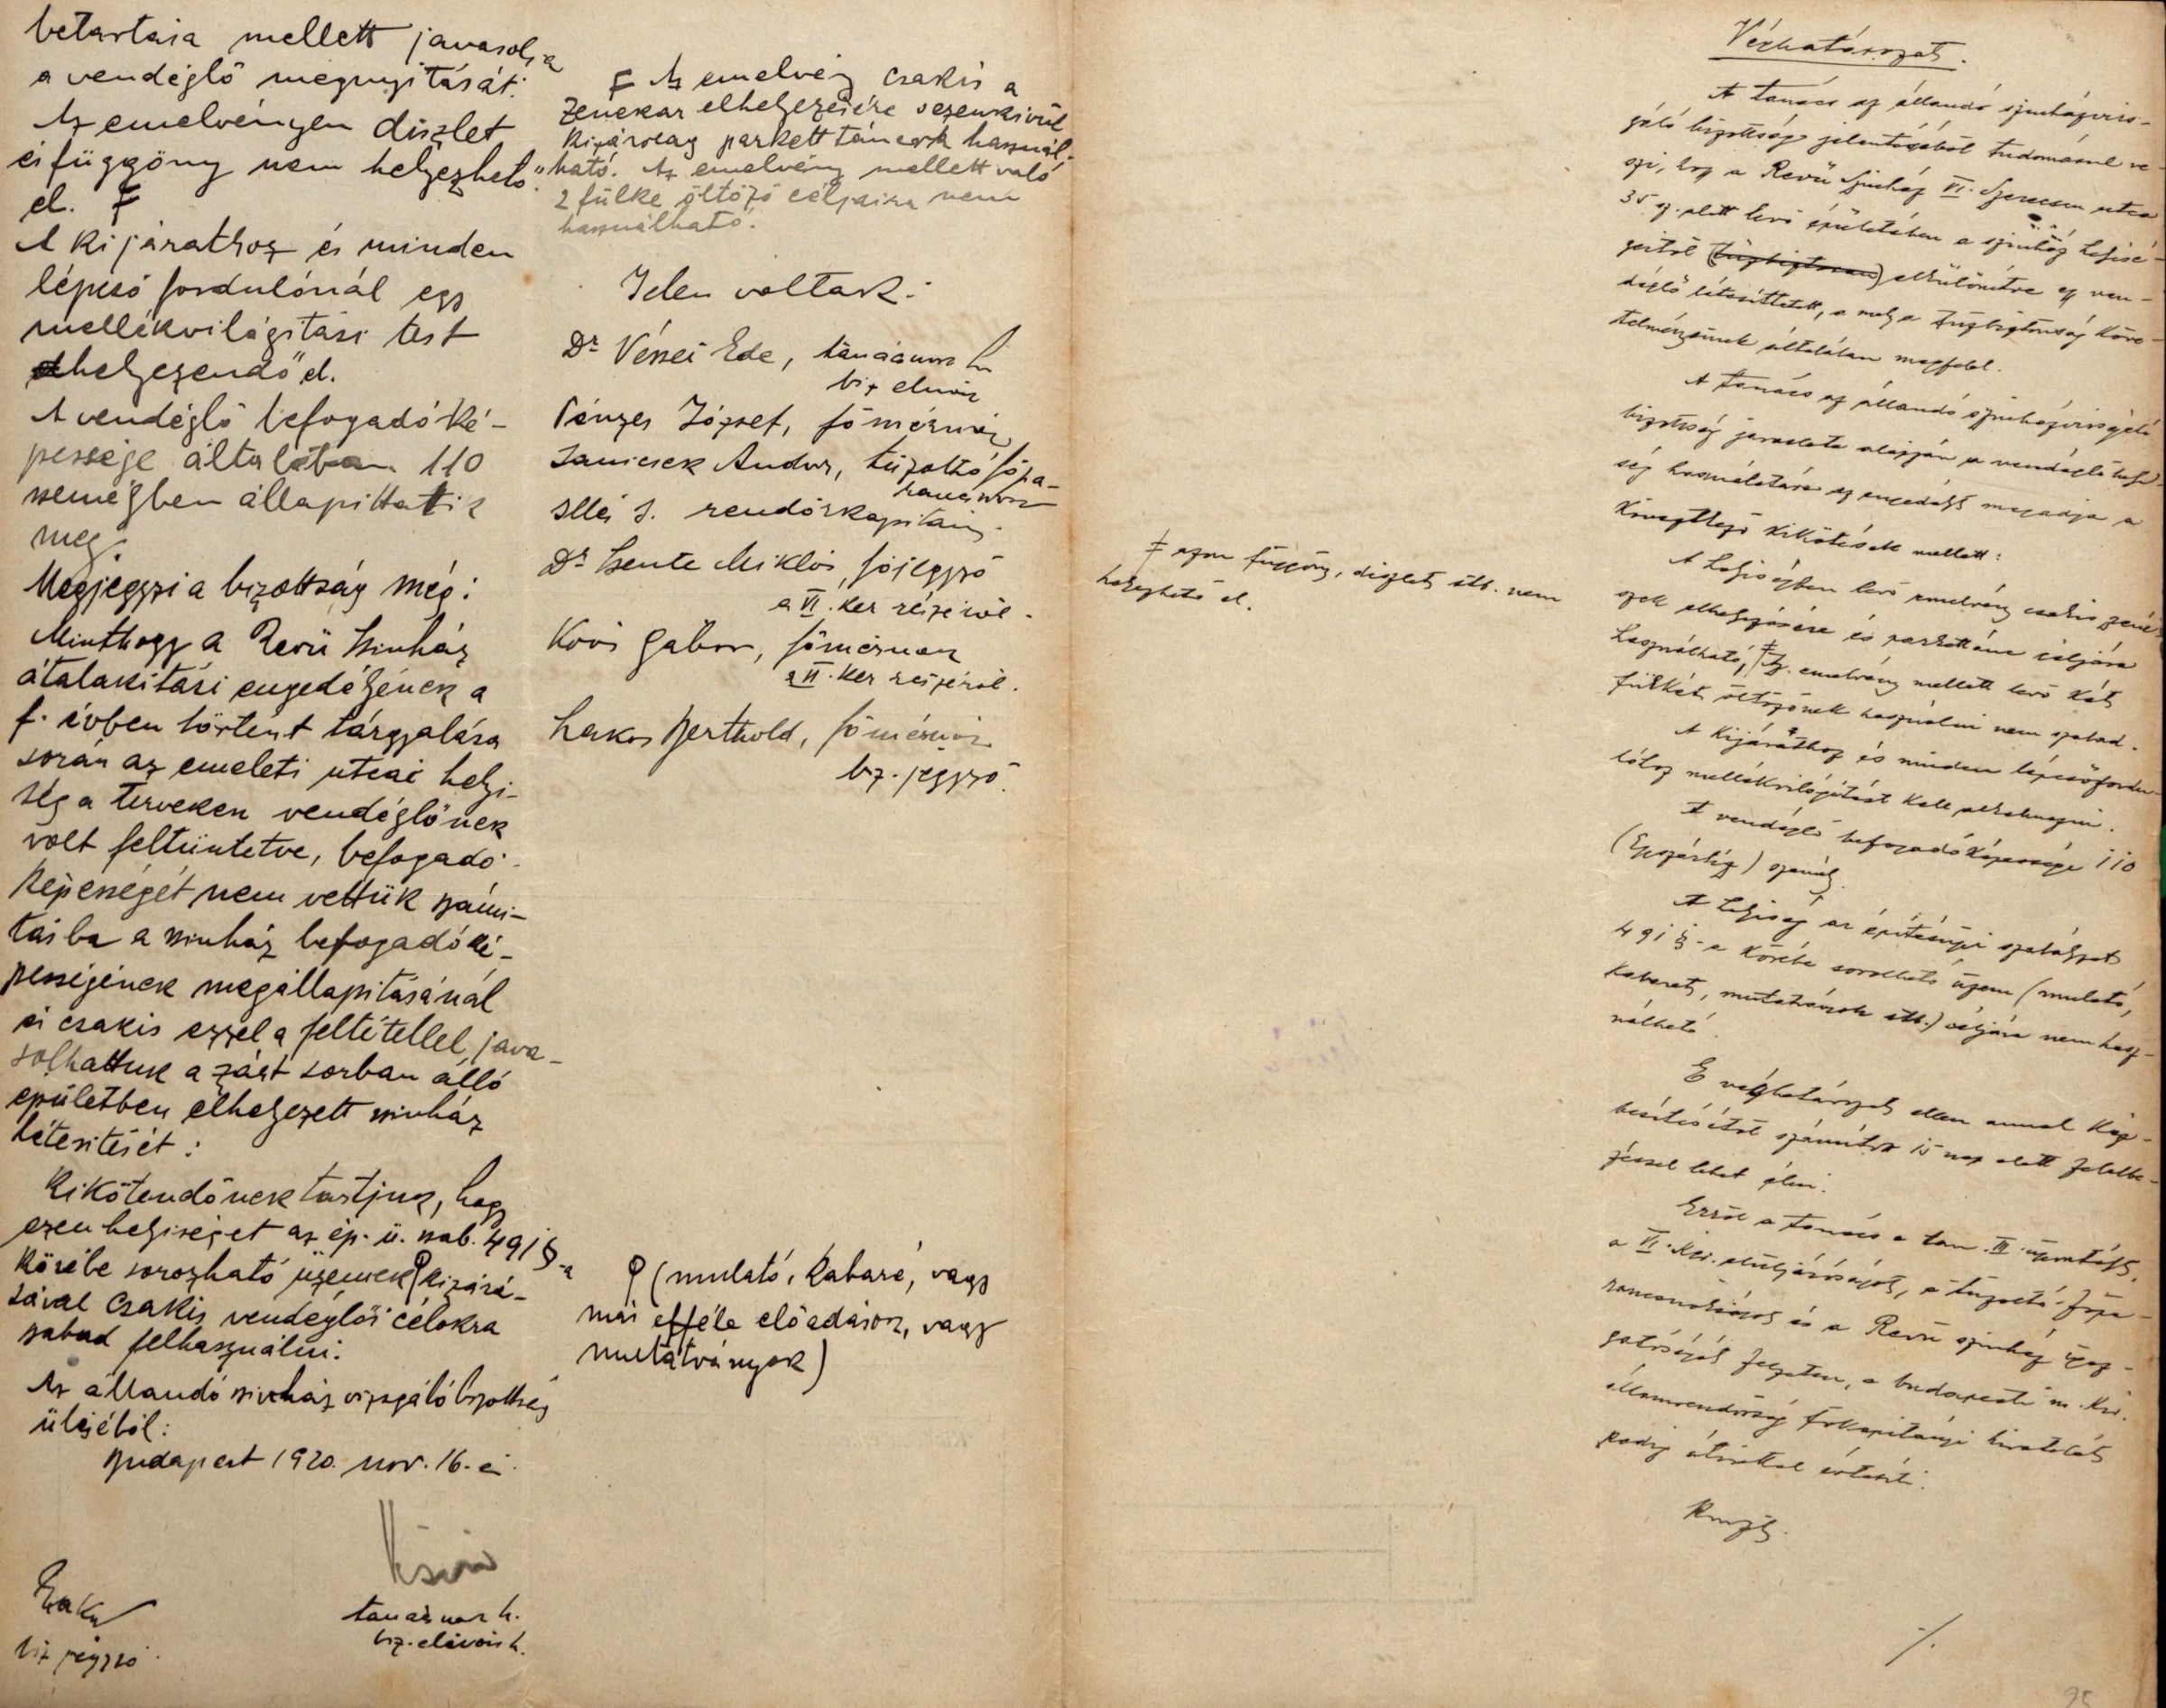 betartása mellett javasolja
a vendéglő megnyitását.
Az emelvényen diszlet
és függöny nem helyezhető
el. F
A kijárathoz és minden
lépcső fordulónál egy
mellékvilágitási test
helyezendő el.
A vendéglő befogadóké-
pessége általában 110
személyben állapittatik
meg.
Megjegyzi a bizottság még:
Minthogy a Revü Szinház
átalakitási engedélyének a
f. évben történt tárgyalása
során az emeleti utcai helyi-
ség a terveken vendéglőnek
volt feltüntetve, befogadó-
képességét nem vettük számi-
tásba a szinház befogadóké-
pességének megállapitásánál
és csakis ezzel a feltétellel java-
solhattuk a zárt sorban álló
épületben elhelyezett szinház
létesitését:
Kikötendőnek tartjuk, hogy
ezen helyiséget az ép. ü. szab. 491 §-a
körébe sorozható üzemek kizárá-
sával csakis vendéglői célokra
szabad felhasználni.
Az állandó szinház vizsgáló bizottság
üléséből:
Budapest 1920. nov. 16-án.
Lakos
biz. jegyző.
tanácsnok h.
biz. elnök h.
F Az emelvény csakis a
zenekar elhelyezésére s ezenkivül
kizárólag parkett táncok használ-
ható. Az emelvény mellett való
2 fülke öltöző céljaira nem
használható.
Jelen voltak:
Dr Vései Ede, tanácsnok h
biz elnök
Pénzes József, főmérnök
Janicsek Andor, tűzoltó főpa-
rancsnok
J. rendőrkapitány.
Dr Miklós, főjegyző
a VI. ker részéről.
Kövi Gábor, főmérnök
a VI. ker részéről.
Lakos Berthold, főmérnök
biz. jegyző.
(mulató, kabaré, vagy
más efféle előadások, vagy
mutatványok)
‡ azon függöny, diszlet stb. nem
helyezhető el.
Véghatározat.
A tanács az állandó szinházvizs-
gáló bizottság jelentéséből tudomásul ve-
szi, hogy a Revü Szinház VI. Szerecsen utca
35 sz. alatt levő épületében a szinház helyisé-
geitől (tűzbiztosan) elkülönitve egy ven-
déglő létesittetett, a mely a tűzbiztonság köve-
telményeinek általában megfelel.
A tanács az állandó szinházvizsgáló
bizottság javaslata alapján a vendéglő helyi-
ség használatára az engedélyt megadja a
következő kikötések mellett:
A helyiségben levő emelvény csakis zené-
szek elhelyezésére és parkettánc céljára
használható, ‡ Az emelvény mellett levő két
fülkét öltözőnek használni nem szabad.
A kijárathoz és minden lépcsőfordu-
lóhoz mellékvilágitást kell alkalmazni.
A vendéglő befogadóképessége 110
(Egyszáztiz) személy.
A helyiség az épitésügyi szabályzat
491 §-a körébe sorolható üzem (mulató,
kabaret, mutatványok stb.) céljára nem hasz-
nálható.
E véghatározat ellen annak kéz-
besitésétől számitott 15 nap alatt felebbe-
zéssel lehet élni.
Erről a tanács a tan. III. ügyosztályt,
a VI. ker. elöljáróságot, a tűzoltó-főpa-
rancsnokságot és a Revü szinház igaz-
gatóságát jelzeten, a budapesti m. kir.
államrendőrség főkapitányi hivatalát
pedig átirattal értesiti.